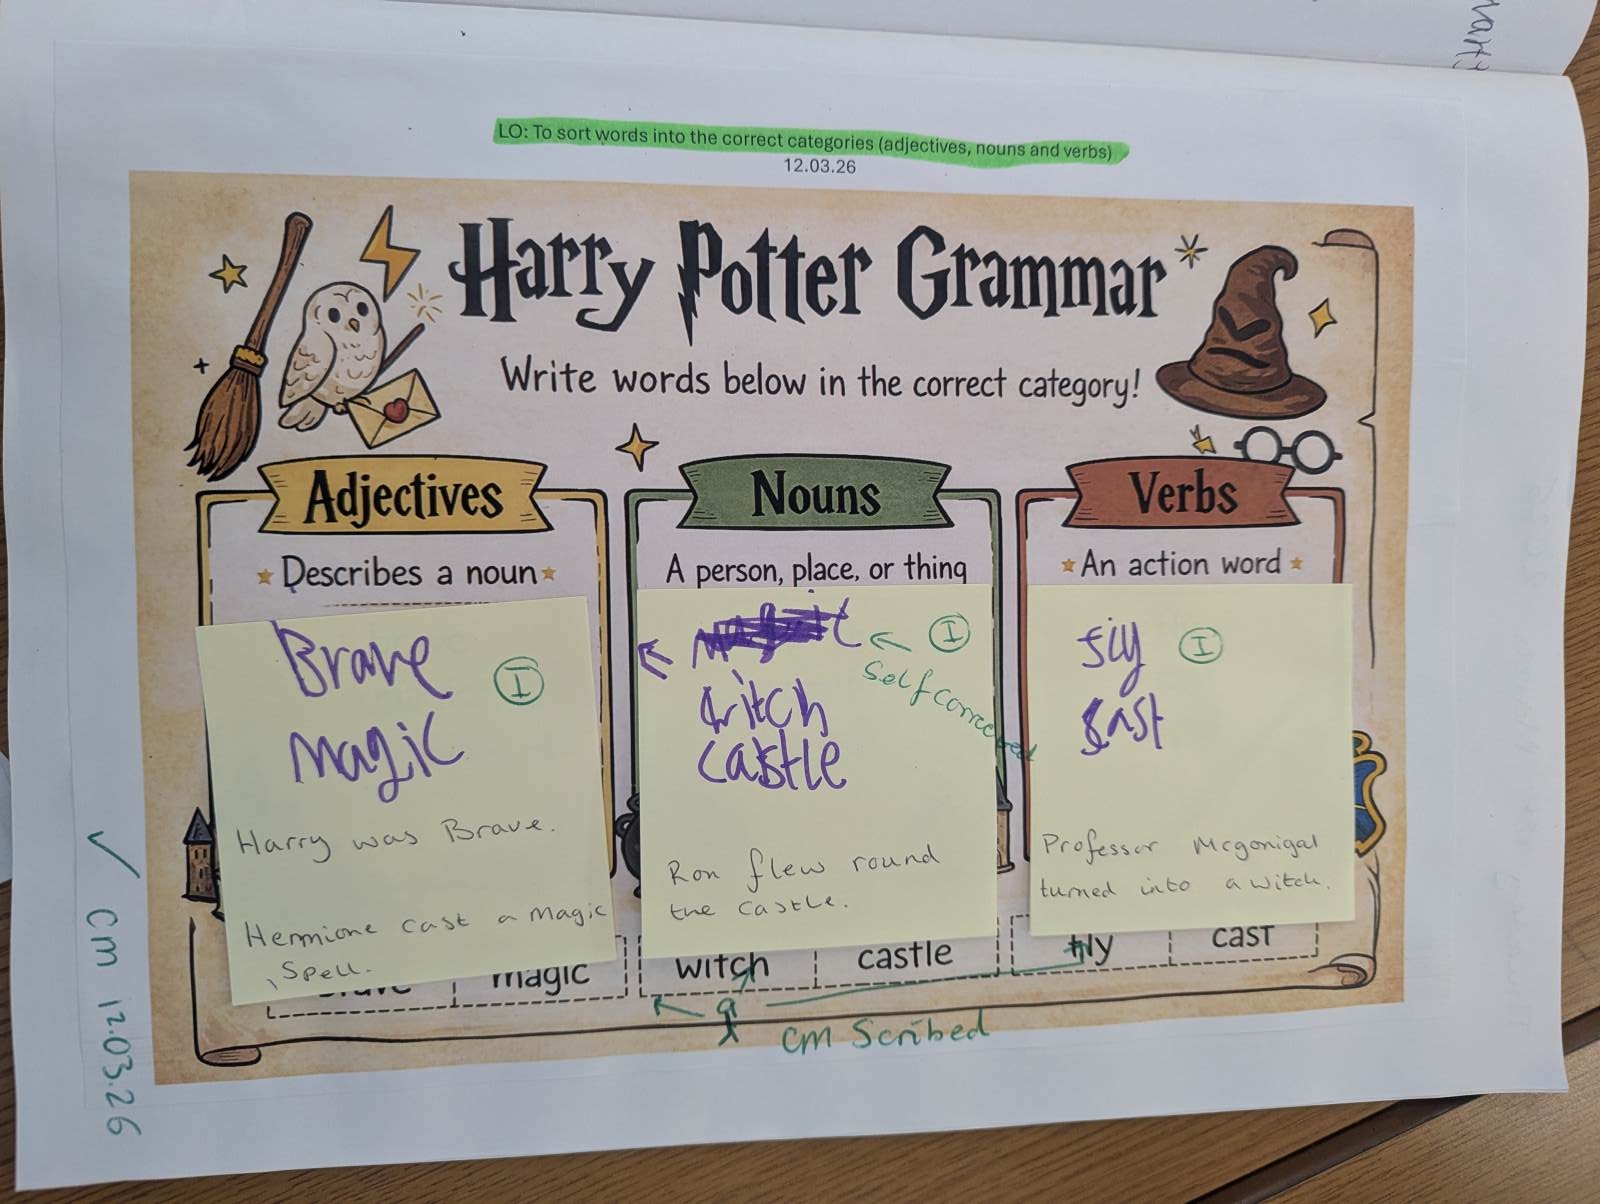 LO: To sort words into the correct categories (adjectives, nouns and verbs)
12.03.26
Harry Potter Grammar
Write words below in the correct category!
Adjectives
Describes a noun
Brave
I
Magic
Harry was Brave.
Hermione cast a magic
Spell.
Nouns
A person, place, or thing
I
Self corrected
witch
castle
Ron flew round
the castle.
Verbs
An action word
fly
I
cast
Professor Mcgonigal
turned into a witch.
magic
witch
castle
fly
cast
cm Scribed
✓ cm 12.03.26